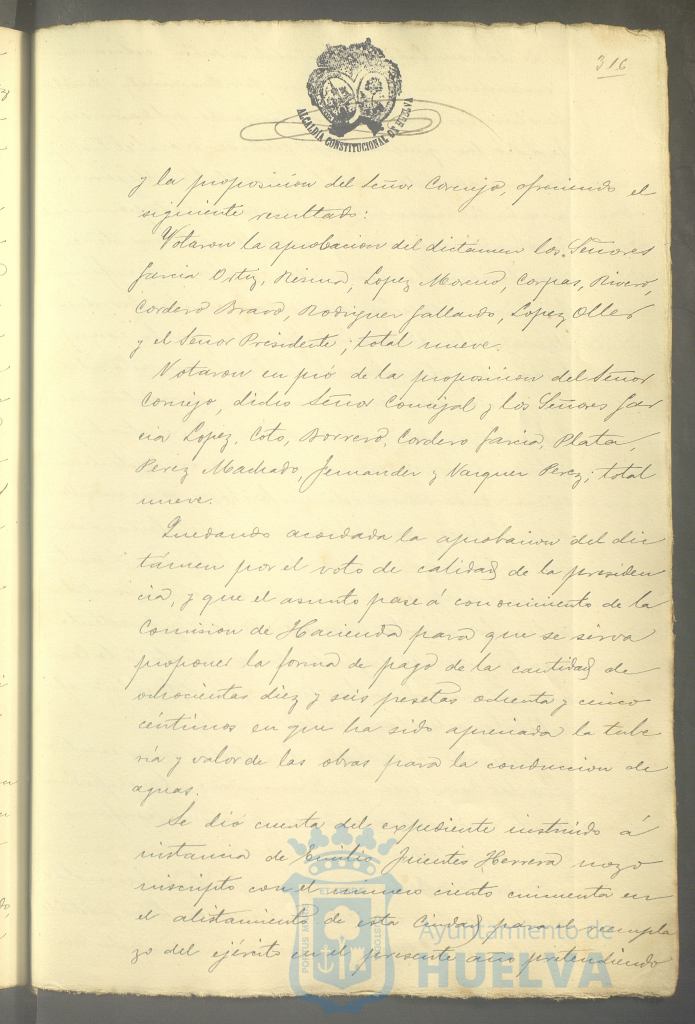 316
ALCALDÍA CONSTITUCIONAL DE HUELVA
y la proposicion del Señor Cornejo, ofreciendo el
siguiente resultado:
Votaron la aprobacion del dictámen los Señores
Garcia Ortiz, Lopez Moreno, Corpas, Rivero,
Cordero Bravo, Rodriguez Gallardo, Lopez Oller
y el Señor Presidente; total nueve.
Votaron en pró de la proposicion del Señor
Cornejo, dicho Señor Concejal y los Señores Gar
cia Lopez, Coto, Borrero, Cordero Garcia, Plata,
Perez Machado, Fernandez y Vazquez Perez; total
nueve.
Quedando acordada la aprobacion del dic
támen por el voto de calidad de la presiden
cia, y que el asunto pase á conocimiento de la
Comision de Hacienda para que se sirva
proponer la forma de pago de la cantidad de
ochocientas diez y seis pesetas ochenta y cinco
céntimos en que ha sido apreciada la tube
ría y valor de las obras para la conduccion de
aguas.
Se dió cuenta del expediente instruido á
instancia de Emilio Fuentes Herrera mozo
inscripto con el numero ciento cincuenta en
el alistamiento de esta Ciudad para el reempla
zo del ejército en el presente año pretendiendo
Ayuntamiento de
HUELVA